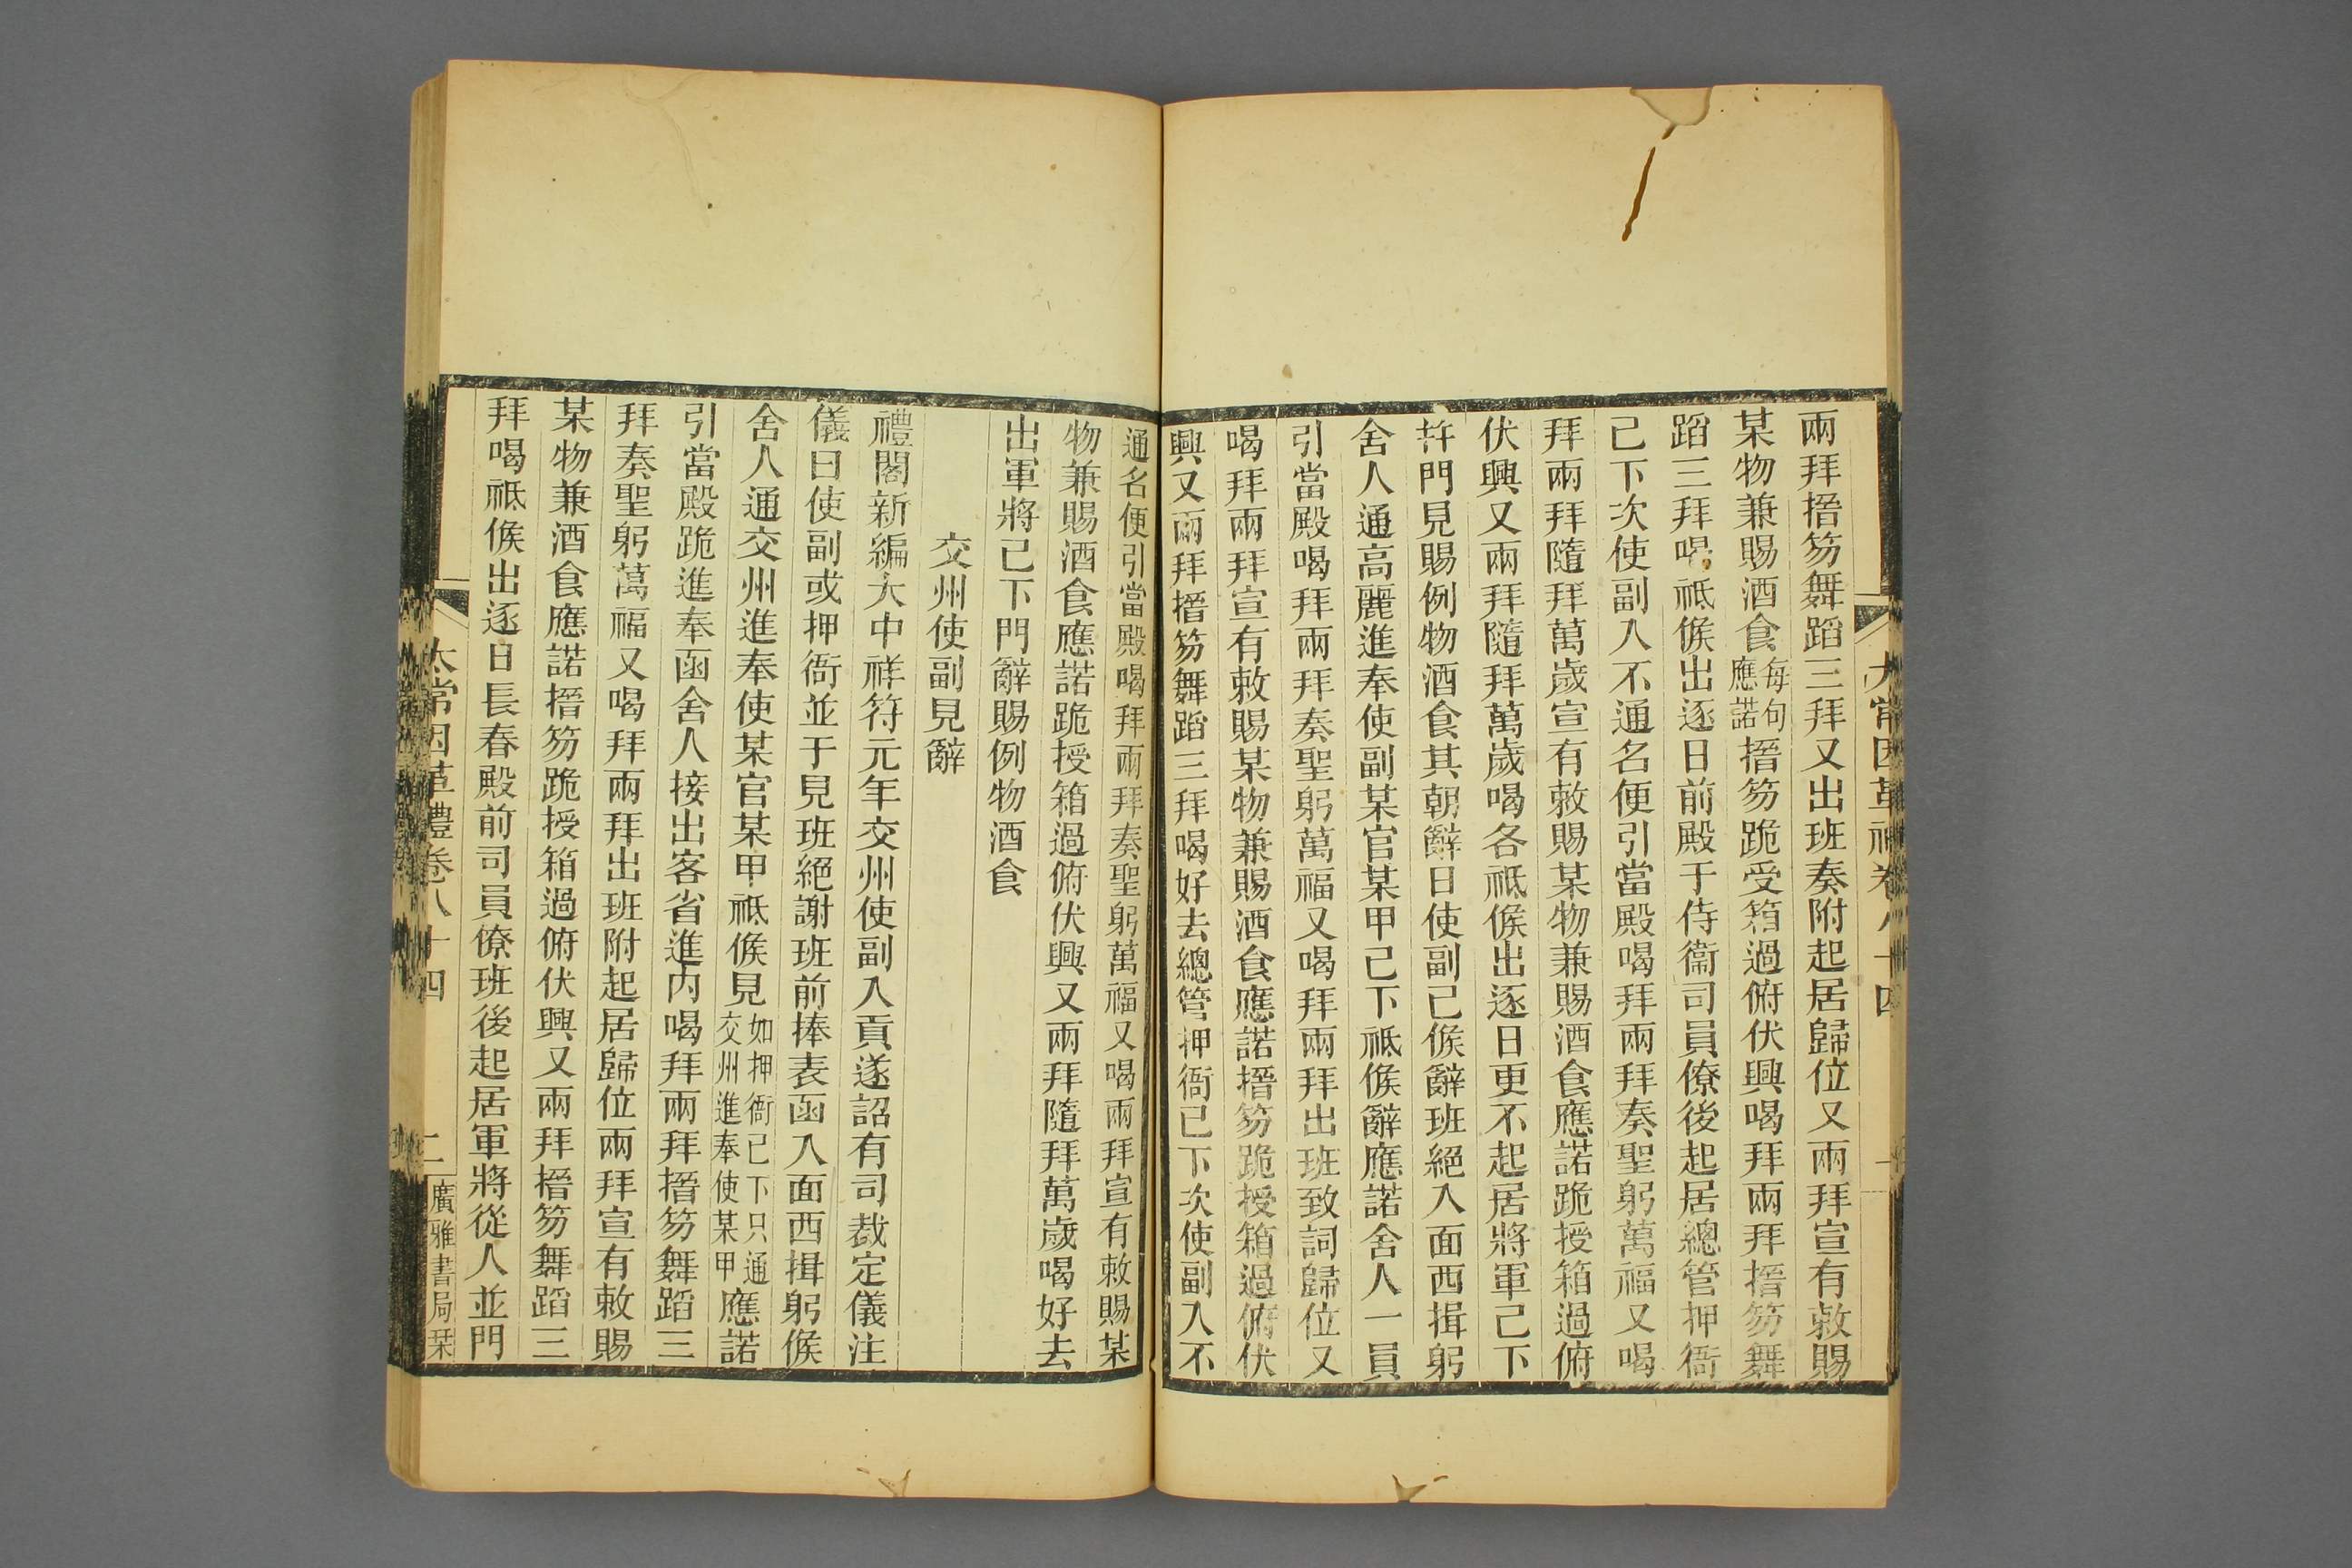 太常因革禮卷八十四 一
兩拜搢笏舞蹈三拜又出班奏附起居歸位又兩拜宣有敕賜
某物兼賜酒食每句應諾搢笏跪受箱過俯伏興喝拜兩拜搢笏舞
蹈三拜喝祗候出逐日前殿于侍衞司員僚後起居總管押衙
已下次使副入不通名便引當殿喝拜兩拜奏聖躬萬福又喝
拜兩拜隨拜萬歲宣有敕賜某物兼賜酒食應諾跪授箱過俯
伏興又兩拜隨拜萬歲喝各祗候出逐日更不起居將軍已下
幷門見賜例物酒食其朝辭日使副已候辭班絕入面西揖躬
舍人通高麗進奉使副某官某甲已下祗候辭應諾舍人一員
引當殿喝拜兩拜奏聖躬萬福又喝拜兩拜出班致詞歸位又
喝拜兩拜宣有敕賜某物兼賜酒食應諾搢笏跪授箱過俯伏
興又兩拜搢笏舞蹈三拜喝好去總管押衙已下次使副入不
通名便引當殿喝拜兩拜奏聖躬萬福又喝兩拜宣有敕賜某
物兼賜酒食應諾跪授箱過俯伏興又兩拜隨拜萬歲喝好去
出軍將已下門辭賜例物酒食
交州使副見辭
禮閣新編大中祥符元年交州使副入貢遂詔有司裁定儀注
儀曰使副或押衙並于見班絕謝班前捧表函入面西揖躬候
舍人通交州進奉使某官某甲祗候見如押衙已下只通交州進奉使某甲應諾
引當殿跪進奉函舍人接出客省進內喝拜兩拜搢笏舞蹈三
拜奏聖躬萬福又喝拜兩拜出班附起居歸位兩拜宣有敕賜
某物兼酒食應諾搢笏跪授箱過俯伏興又兩拜搢笏舞蹈三
拜喝祗候出逐日長春殿前司員僚班後起居軍將從人並門
太常因革禮卷八十四 二 廣雅書局栞